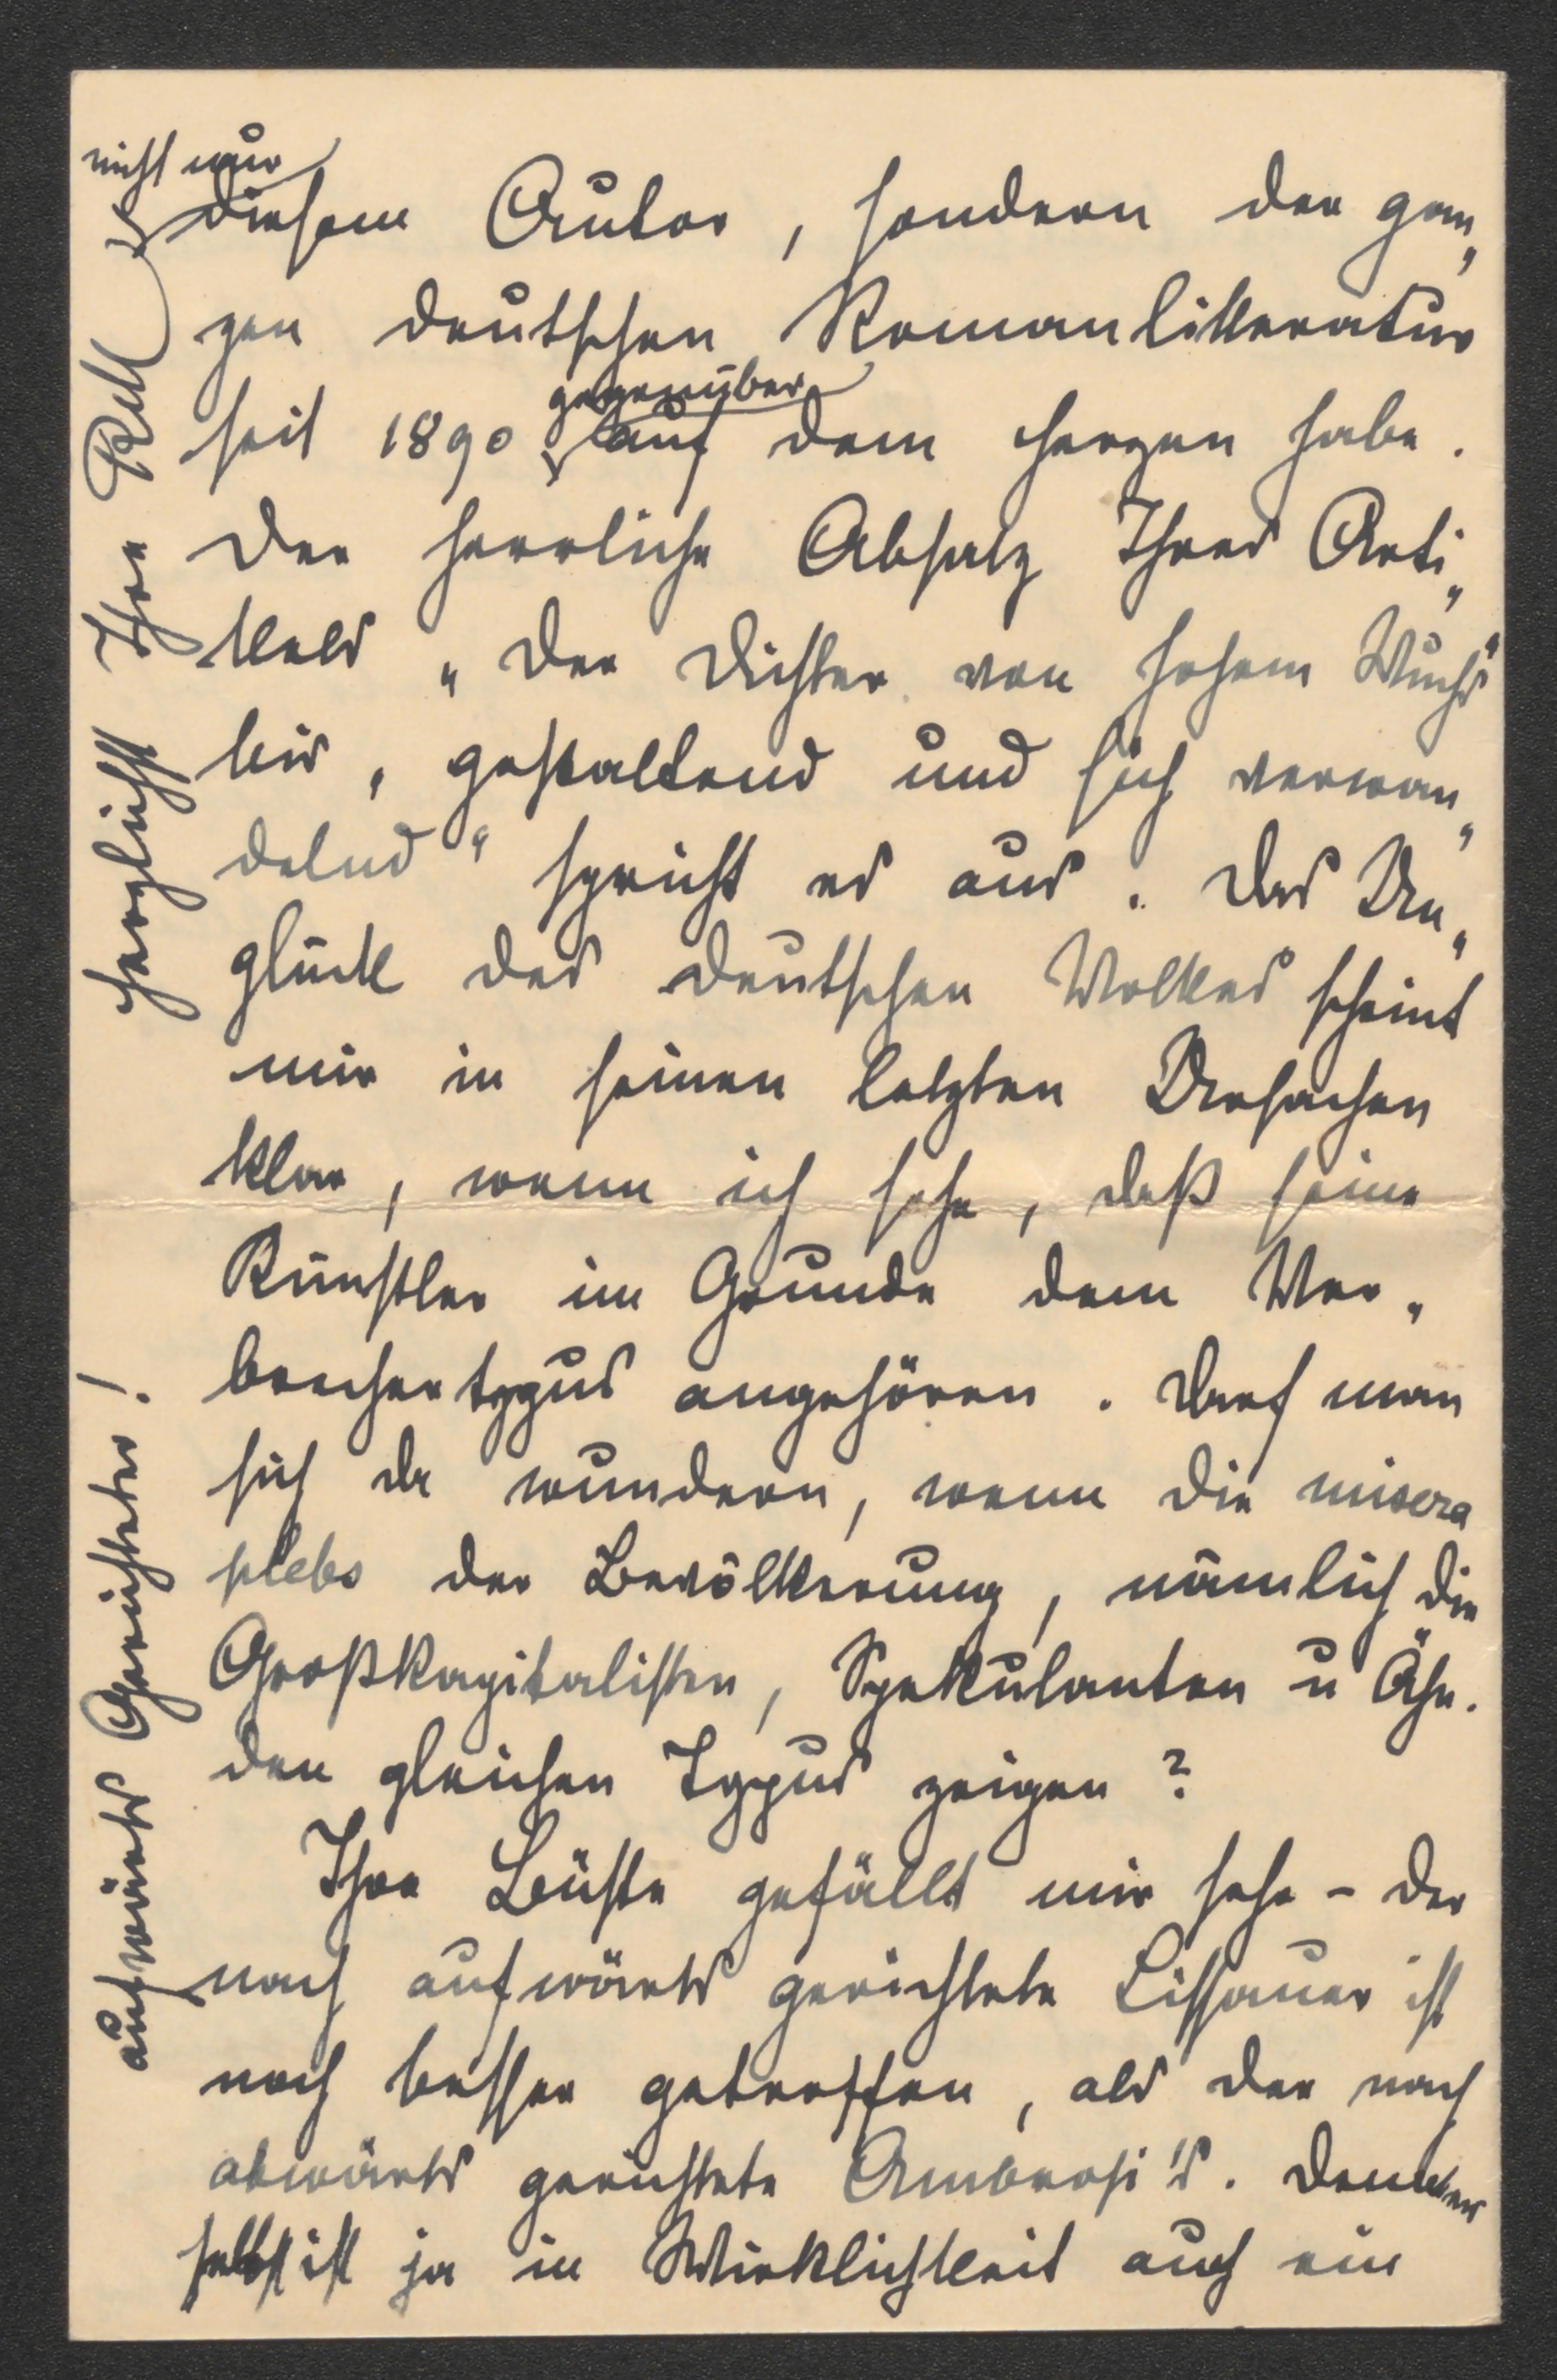 nicht nur
diesem Autor, sondern der gan„
zen deutschen Romanlitteratur
gegenüber
seit 1890 auf dem Herzen habe.
Der herrliche Absatz Ihres Arti„
kels „Der Dichter von hohem Wuchs“
bis „gestaltend und sich verwan„
delnd“ spricht es aus. Das Un„
glück des deutschen Volkes scheint
mir in seinen letzten Ursachen
klar, wenn ich sehe, daß seine
Künstler im Grunde dem Ver„
brechertypus angehören. Darf man
sich da wundern, wenn die misera
plebs der Bevölkerung, nämlich die
Großkapitalisten, Spekulanten u Ähn.
den gleichen Typus zeigen?
Ihre Büste gefällt mir sehr – der
nach aufwärts gerichtete Lissauer ist
noch besser getroffen, als der nach
abwärts gerichtete Ambrosi's. Denn er
selbst ist ja in Wirklichkeit auch ein
aufwärts Gerichteter!
Herzlichst Ihr Rell